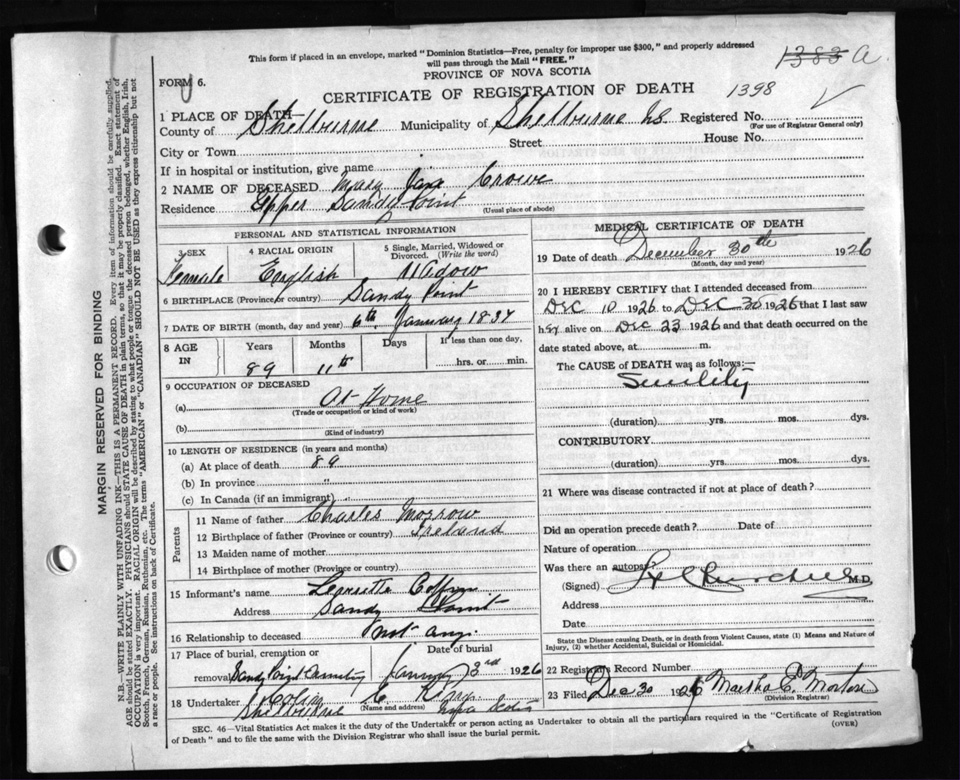 This form if placed in an envelope, marked "Dominion Statistics—Free, penalty for improper use $300," and properly addressed
will pass through the Mail "FREE."
1383 A
PROVINCE OF NOVA SCOTIA
FORM 6.
CERTIFICATE OF REGISTRATION OF DEATH 1398
1 PLACE OF DEATH—
County of Shelburne Municipality of Shelburne NS Registered No.
(For use of Registrar General only)
City or Town Street House No.
If in hospital or institution, give name
2 NAME OF DECEASED Mary Jane Crowe
Residence Upper Sandy Point
(Usual place of abode)
PERSONAL AND STATISTICAL INFORMATION
3 SEX Female
4 RACIAL ORIGIN English
5 Single, Married, Widowed or Divorced. (Write the word) Widow
6 BIRTHPLACE (Province or country) Sandy Point
7 DATE OF BIRTH (month, day and year) 6th January 1837
8 AGE IN Years Months Days If less than one day,
89 11th hrs. or min.
9 OCCUPATION OF DECEASED
(a) At Home
(Trade or occupation or kind of work)
(b)
(Kind of industry)
10 LENGTH OF RESIDENCE (in years and months)
(a) At place of death 89
(b) In province "
(c) In Canada (if an immigrant) "
Parents
11 Name of father Charles Morrow
12 Birthplace of father (Province or country) Ireland
13 Maiden name of mother
14 Birthplace of mother (Province or country)
15 Informant's name Coffin
Address Sandy Point
16 Relationship to deceased not any.
17 Place of burial, cremation or removal Date of burial
Sandy Point Cemetery January 3rd 1926
18 Undertaker Colin C.
(Name and address)
Shelburne Nova Scotia
MEDICAL CERTIFICATE OF DEATH
19 Date of death December 30th 1926
(Month, day and year)
20 I HEREBY CERTIFY that I attended deceased from
Dec 10 1926 to Dec 30 1926 that I last saw
her alive on Dec 23 1926 and that death occurred on the
date stated above, at m.
The CAUSE of DEATH was as follows:—
Senility
(duration) yrs. mos. dys.
CONTRIBUTORY
(duration) yrs. mos. dys.
21 Where was disease contracted if not at place of death?
Did an operation precede death? Date of
Nature of operation
Was there an autopsy?
(Signed) Churchill M.D.
Address
Date
State the Disease causing Death, or in death from Violent Causes, state (1) Means and Nature of
Injury, (2) whether Accidental, Suicidal or Homicidal.
22 Registrar's Record Number
23 Filed Dec 30 1926 Martha E. Morton
(Division Registrar)
SEC. 46—Vital Statistics Act makes it the duty of the Undertaker or person acting as Undertaker to obtain all the particulars required in the "Certificate of Registration
of Death" and to file the same with the Division Registrar who shall issue the burial permit.
(OVER)
MARGIN RESERVED FOR BINDING
N.B.—WRITE PLAINLY WITH UNFADING INK—THIS IS A PERMANENT RECORD. Every item of information should be carefully supplied.
AGE should be stated EXACTLY. PHYSICIANS should STATE CAUSE OF DEATH in plain terms, so that it may be properly classified. Exact statement of
OCCUPATION is very important. RACIAL ORIGIN will be described by stating to what people or tongue the deceased person belonged, whether English, Irish,
Scotch, French, German, Russian, Ruthenian, etc. The terms "AMERICAN" or "CANADIAN" SHOULD NOT BE USED as they express citizenship but not
a race or people. See instructions on back of Certificate.